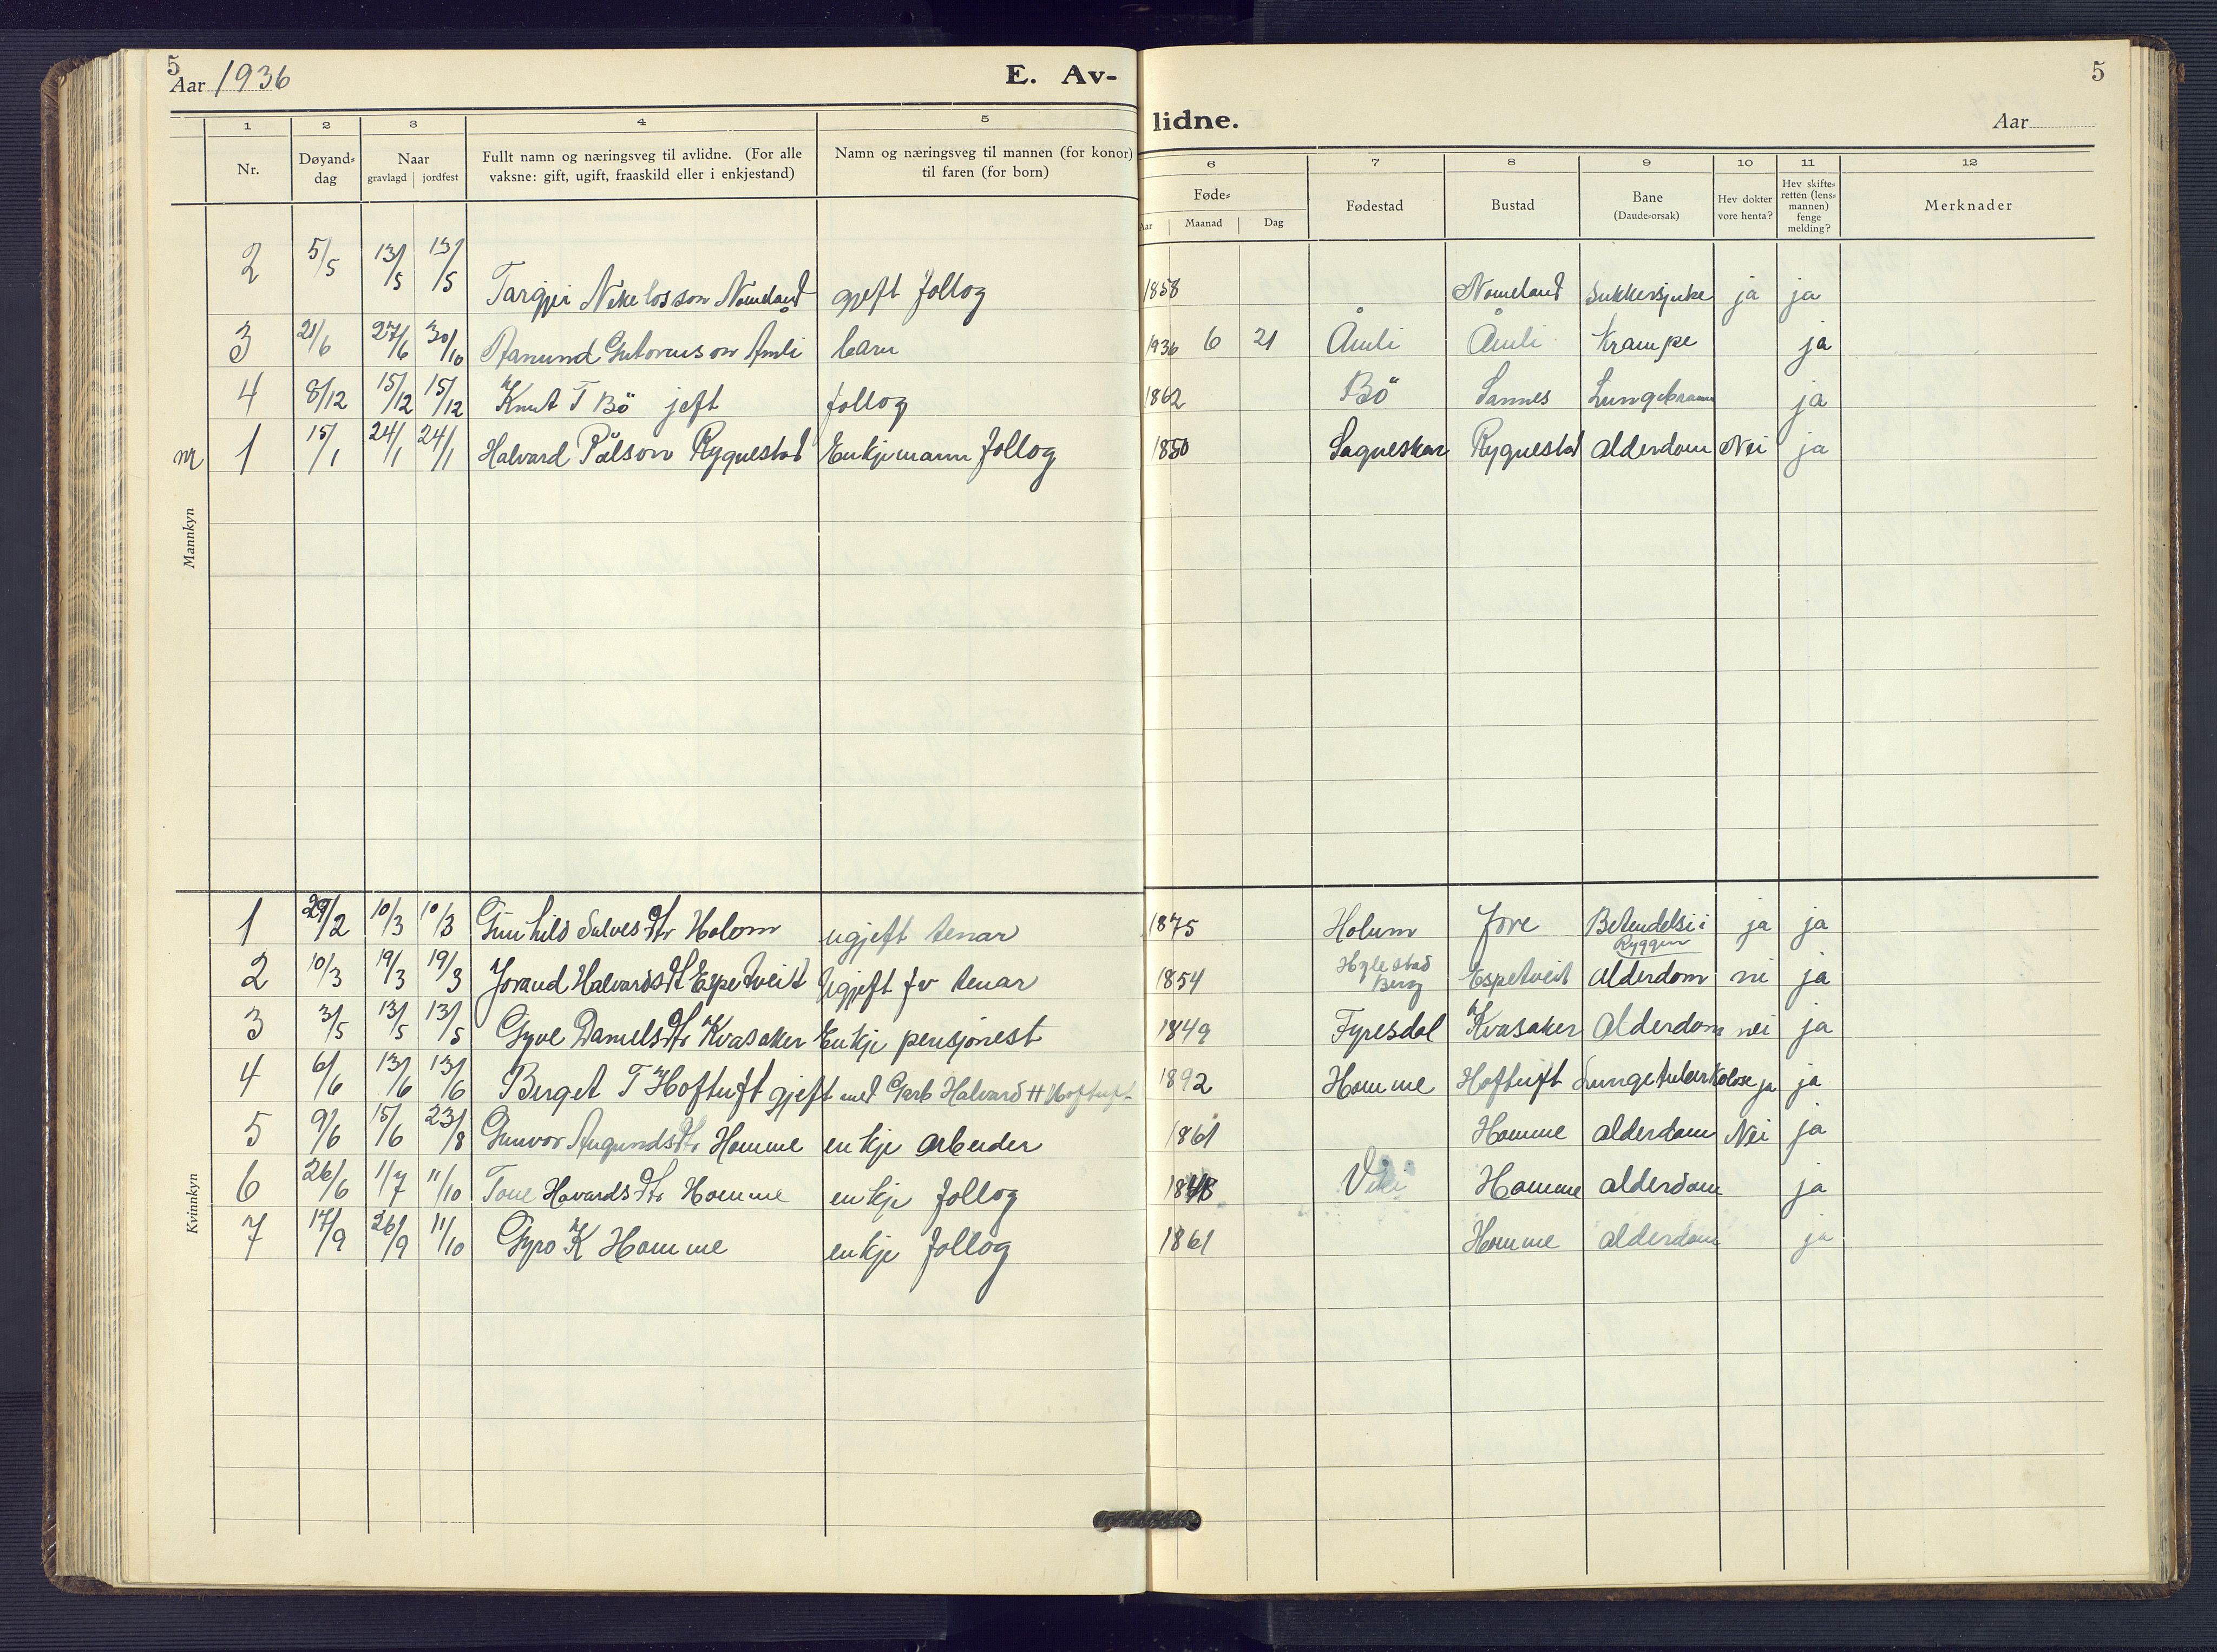 5
Aar 1936
E. Av-
lidne.
5
Aar
1 2 3 4 5 6 7 8 9 10 11 12
Nr.
Døyand-
dag
Naar
gravlagd jordfest
Fullt namn og næringsveg til avlidne. (For alle
vaksne: gift, ugift, fraaskild eller i enkjestand)
Namn og næringsveg til mannen (for konor)
til faren (for born)
Føde-
Aar Maanad Dag
Fødestad
Bustad
Bane
(Daude-orsak)
Hev dokter
vore henta?
Hev skifte-
retten (lens-
mannen)
fenge
melding?
Merknader
Mannkyn
2 5/5 13/5 13/5 Targjei Nikelosson Nomeland gjeft follog 1858 Nomeland Sukkersjuke ja ja
3 21/6 27/6 30/10 Aanund Gutormson Åmli barn 1936 6 21 Åmli Åmli Krampe ja
4 8/12 15/12 15/12 Knut T Bö jeft follog 1862 Bö Sannes ja
nr 1 15/1 24/1 24/1 Halvard Pålson Rygnestad Enkjemann follog 1850 Sagneskar Rygnestad alderdom Nei ja
Kvinnkyn
1 29/2 10/3 10/3 Gunhild Salvesdtr Holom ugjeft tenar 1875 Holum Jore Betendelsi i ja ja
Ryggen
2 10/3 19/3 19/3 Jorand Halvardsdt Espetveit Ugjeft fv tenar 1854 Hylestad Berg Espetveit alderdom ni ja
3 3/5 13/5 13/5 Gyve Danielsdtr Kvasaker Enkje pensjonest 1849 Fyresdal Kvasaker alderdom nei ja
4 6/6 13/6 13/6 Berget T Hoftuft gjeft med Garb Halvard H Hoftuft 1892 Homme Hoftuft Lungetuberkolose ja ja
5 9/6 15/6 23/8 Gunvor Augundsdtr Homme enkje arbeider 1861 Homme alderdom Nei ja
6 26/6 1/7 11/10 Tone Havardsdtr Homme enkje follog 1848 Viki Homme alderdom ja
7 17/9 26/9 11/10 Gyro K Homme enkje follog 1861 Homme alderdom ja